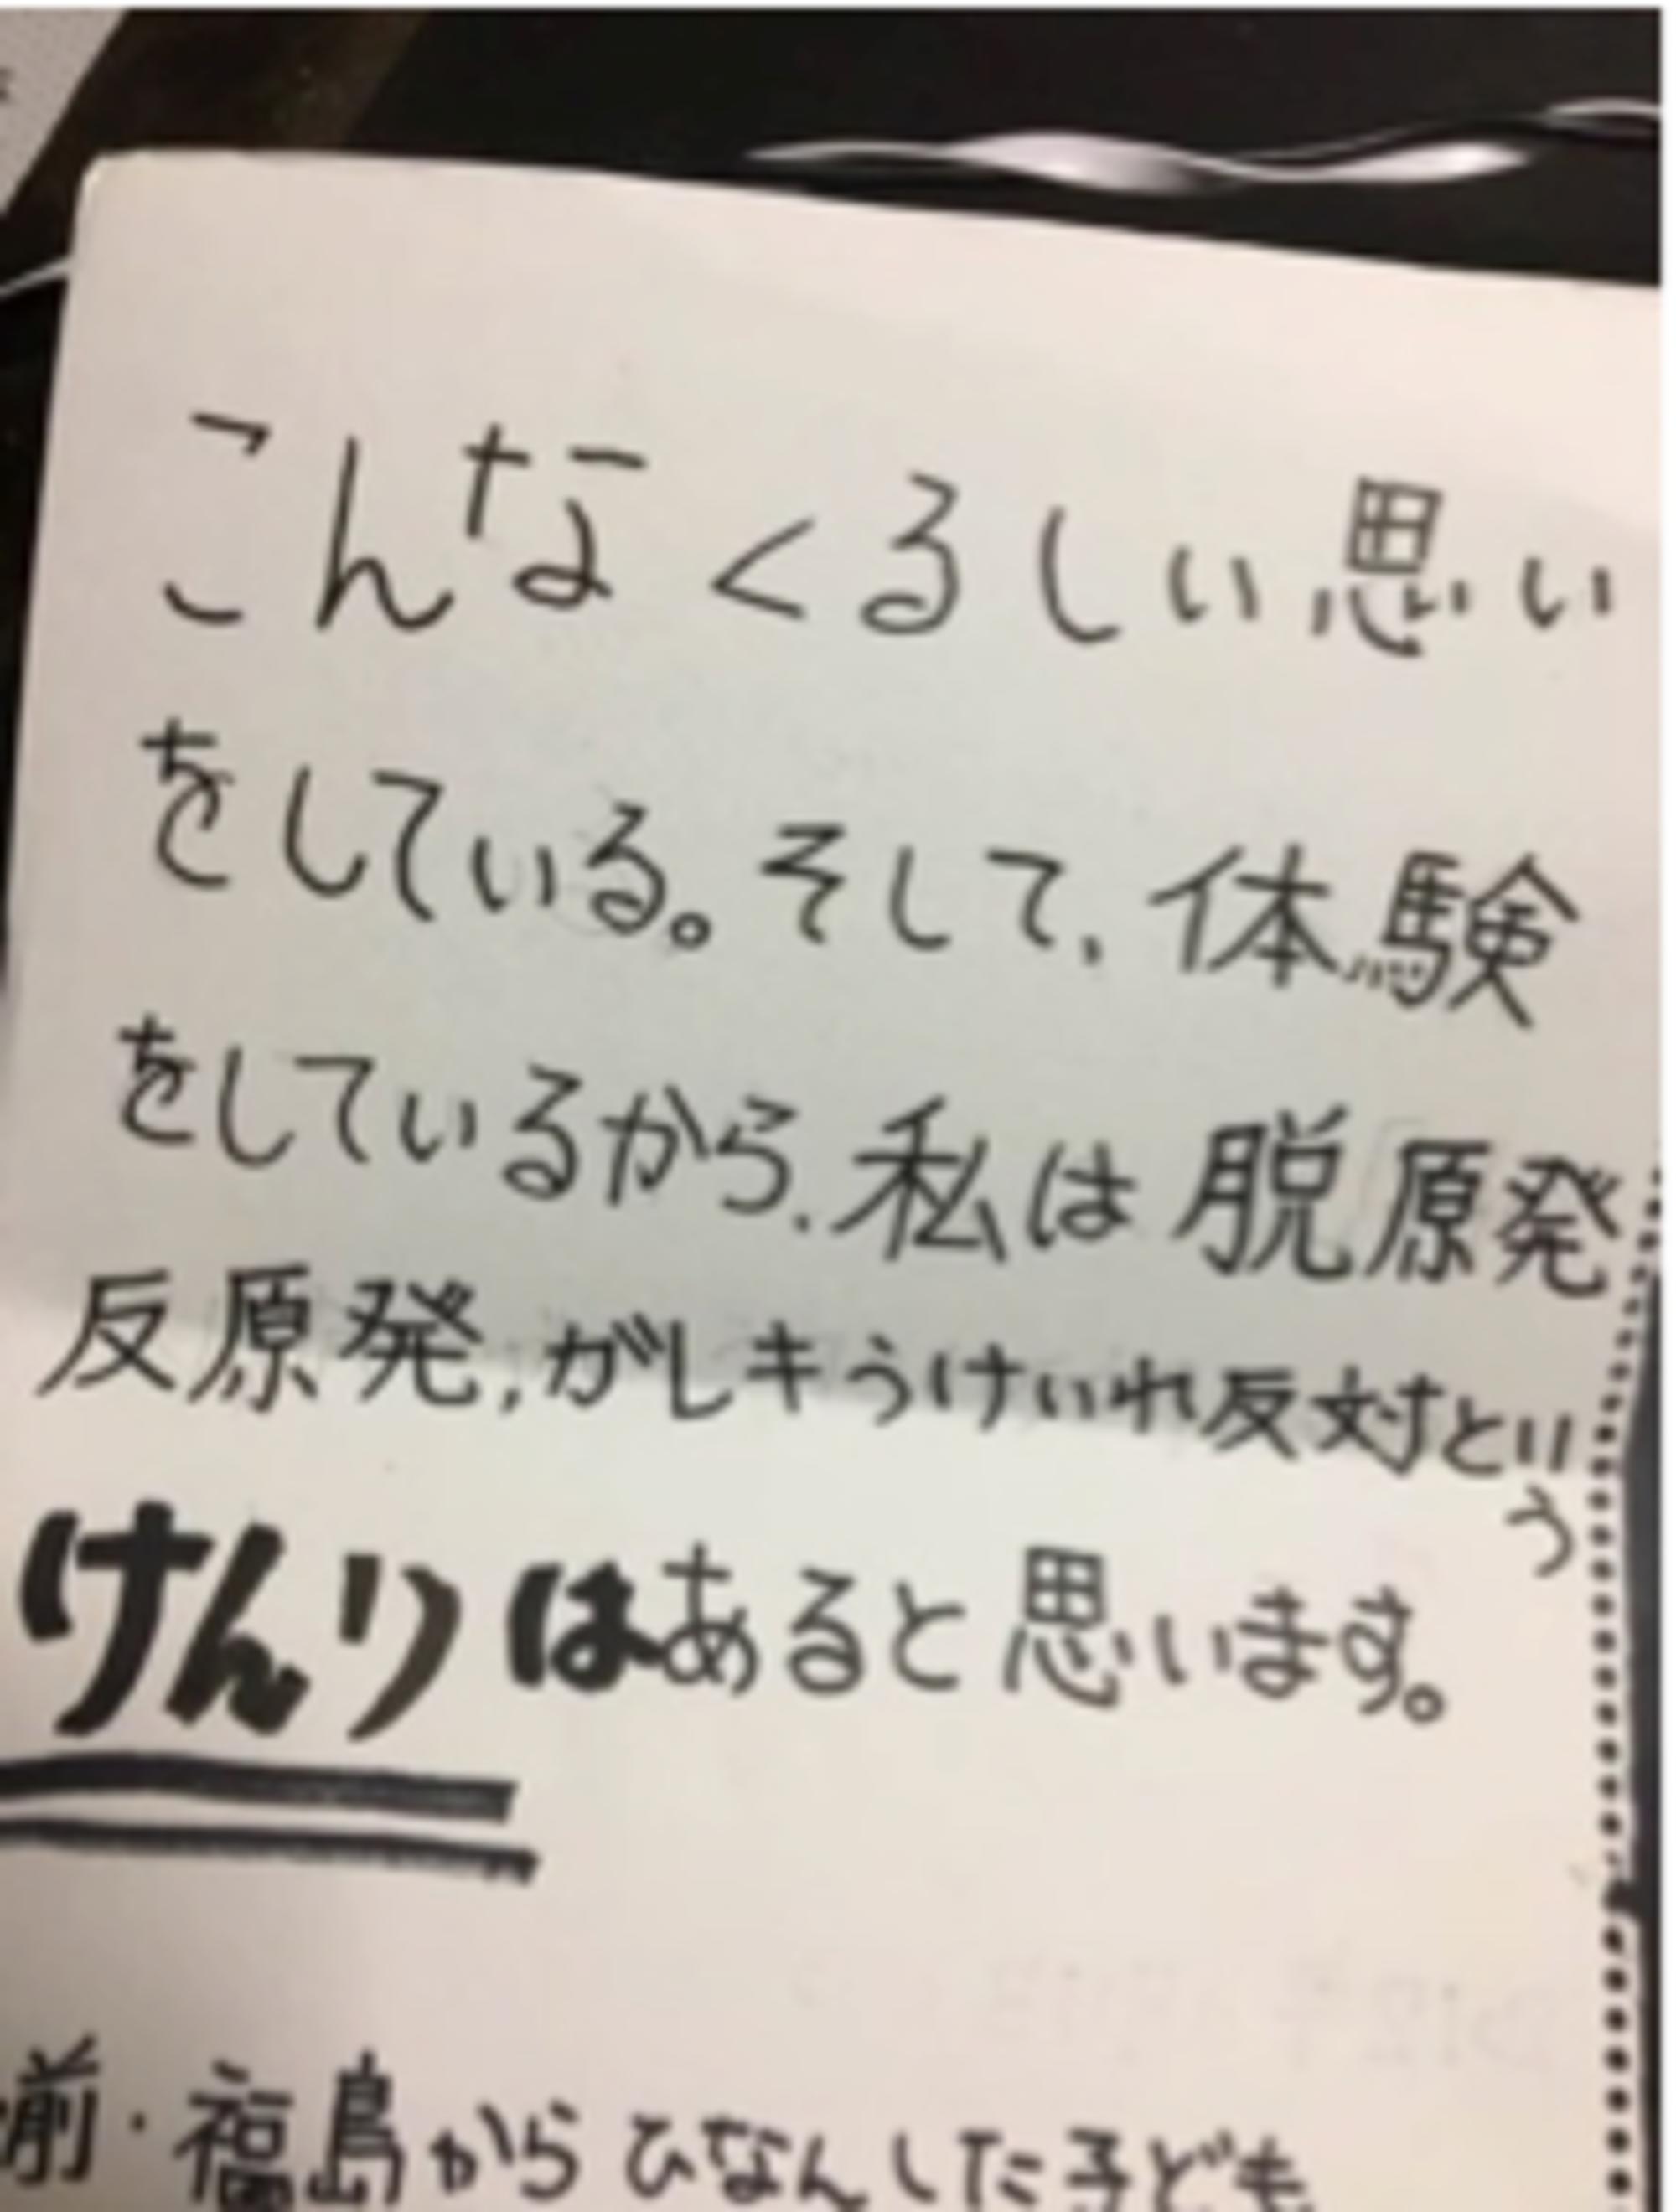 こんなくるしい思い
をしている。そして、体験
をしているから、私は脱原発
反原発,がレキうけいれ反対とい
う
けんりはあると思います。
前・福島からひなんした子ども